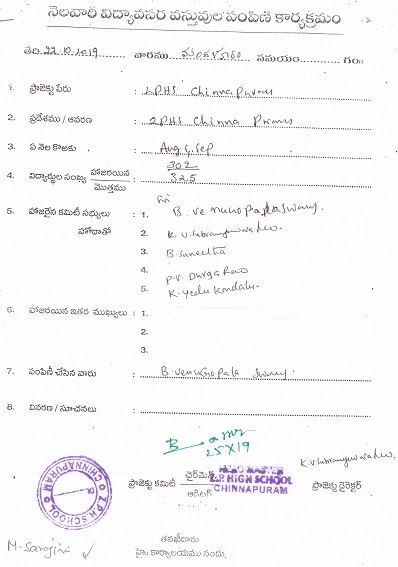 నెలవారీ విద్యావసర వస్తువుల పంపిణి కార్యక్రమం
-2
తేది.22.10.2019 వారము మంగళవారం సమయం గం॥
1. ప్రాజెక్టు పేరు : ZPHS Chinnapuram
2. ప్రదేశము / ఆవరణ : ZPHS Chinna Puram
3. ఏ నెల కొఱకు : Aug & Sep
4. విద్యార్థుల సంఖ్య హాజరయిన / మొత్తము : 302 / 325
5. హాజరైన కమిటీ సభ్యులు : 1. Sri B. Venugopalaswamy.
హోదాతో 2. K.V. Subramanyeswara
3. B. Suneetha
4. P.V. Durga Rao
5. K. Yedu Kondalu.
6. హాజరయిన ఇతర ముఖ్యులు : 1.
2.
3.
7. పంపిణీ చేసిన వారు : B. Venu Gopala Swamy
8. వివరణ / సూచనలు :
25 X 19
ప్రాజెక్టు కమిటీ చైర్‌మెన్ / ఆడిటర్
HEAD MASTER
Z.P. HIGH SCHOOL
CHINNAPURAM
ప్రాజెక్టు డైరెక్టర్
Z.P.H.SCHOOL CHINNAPURAM
M. Sarojini
తనఖీదారు
హైం కార్యాలయము నందు,